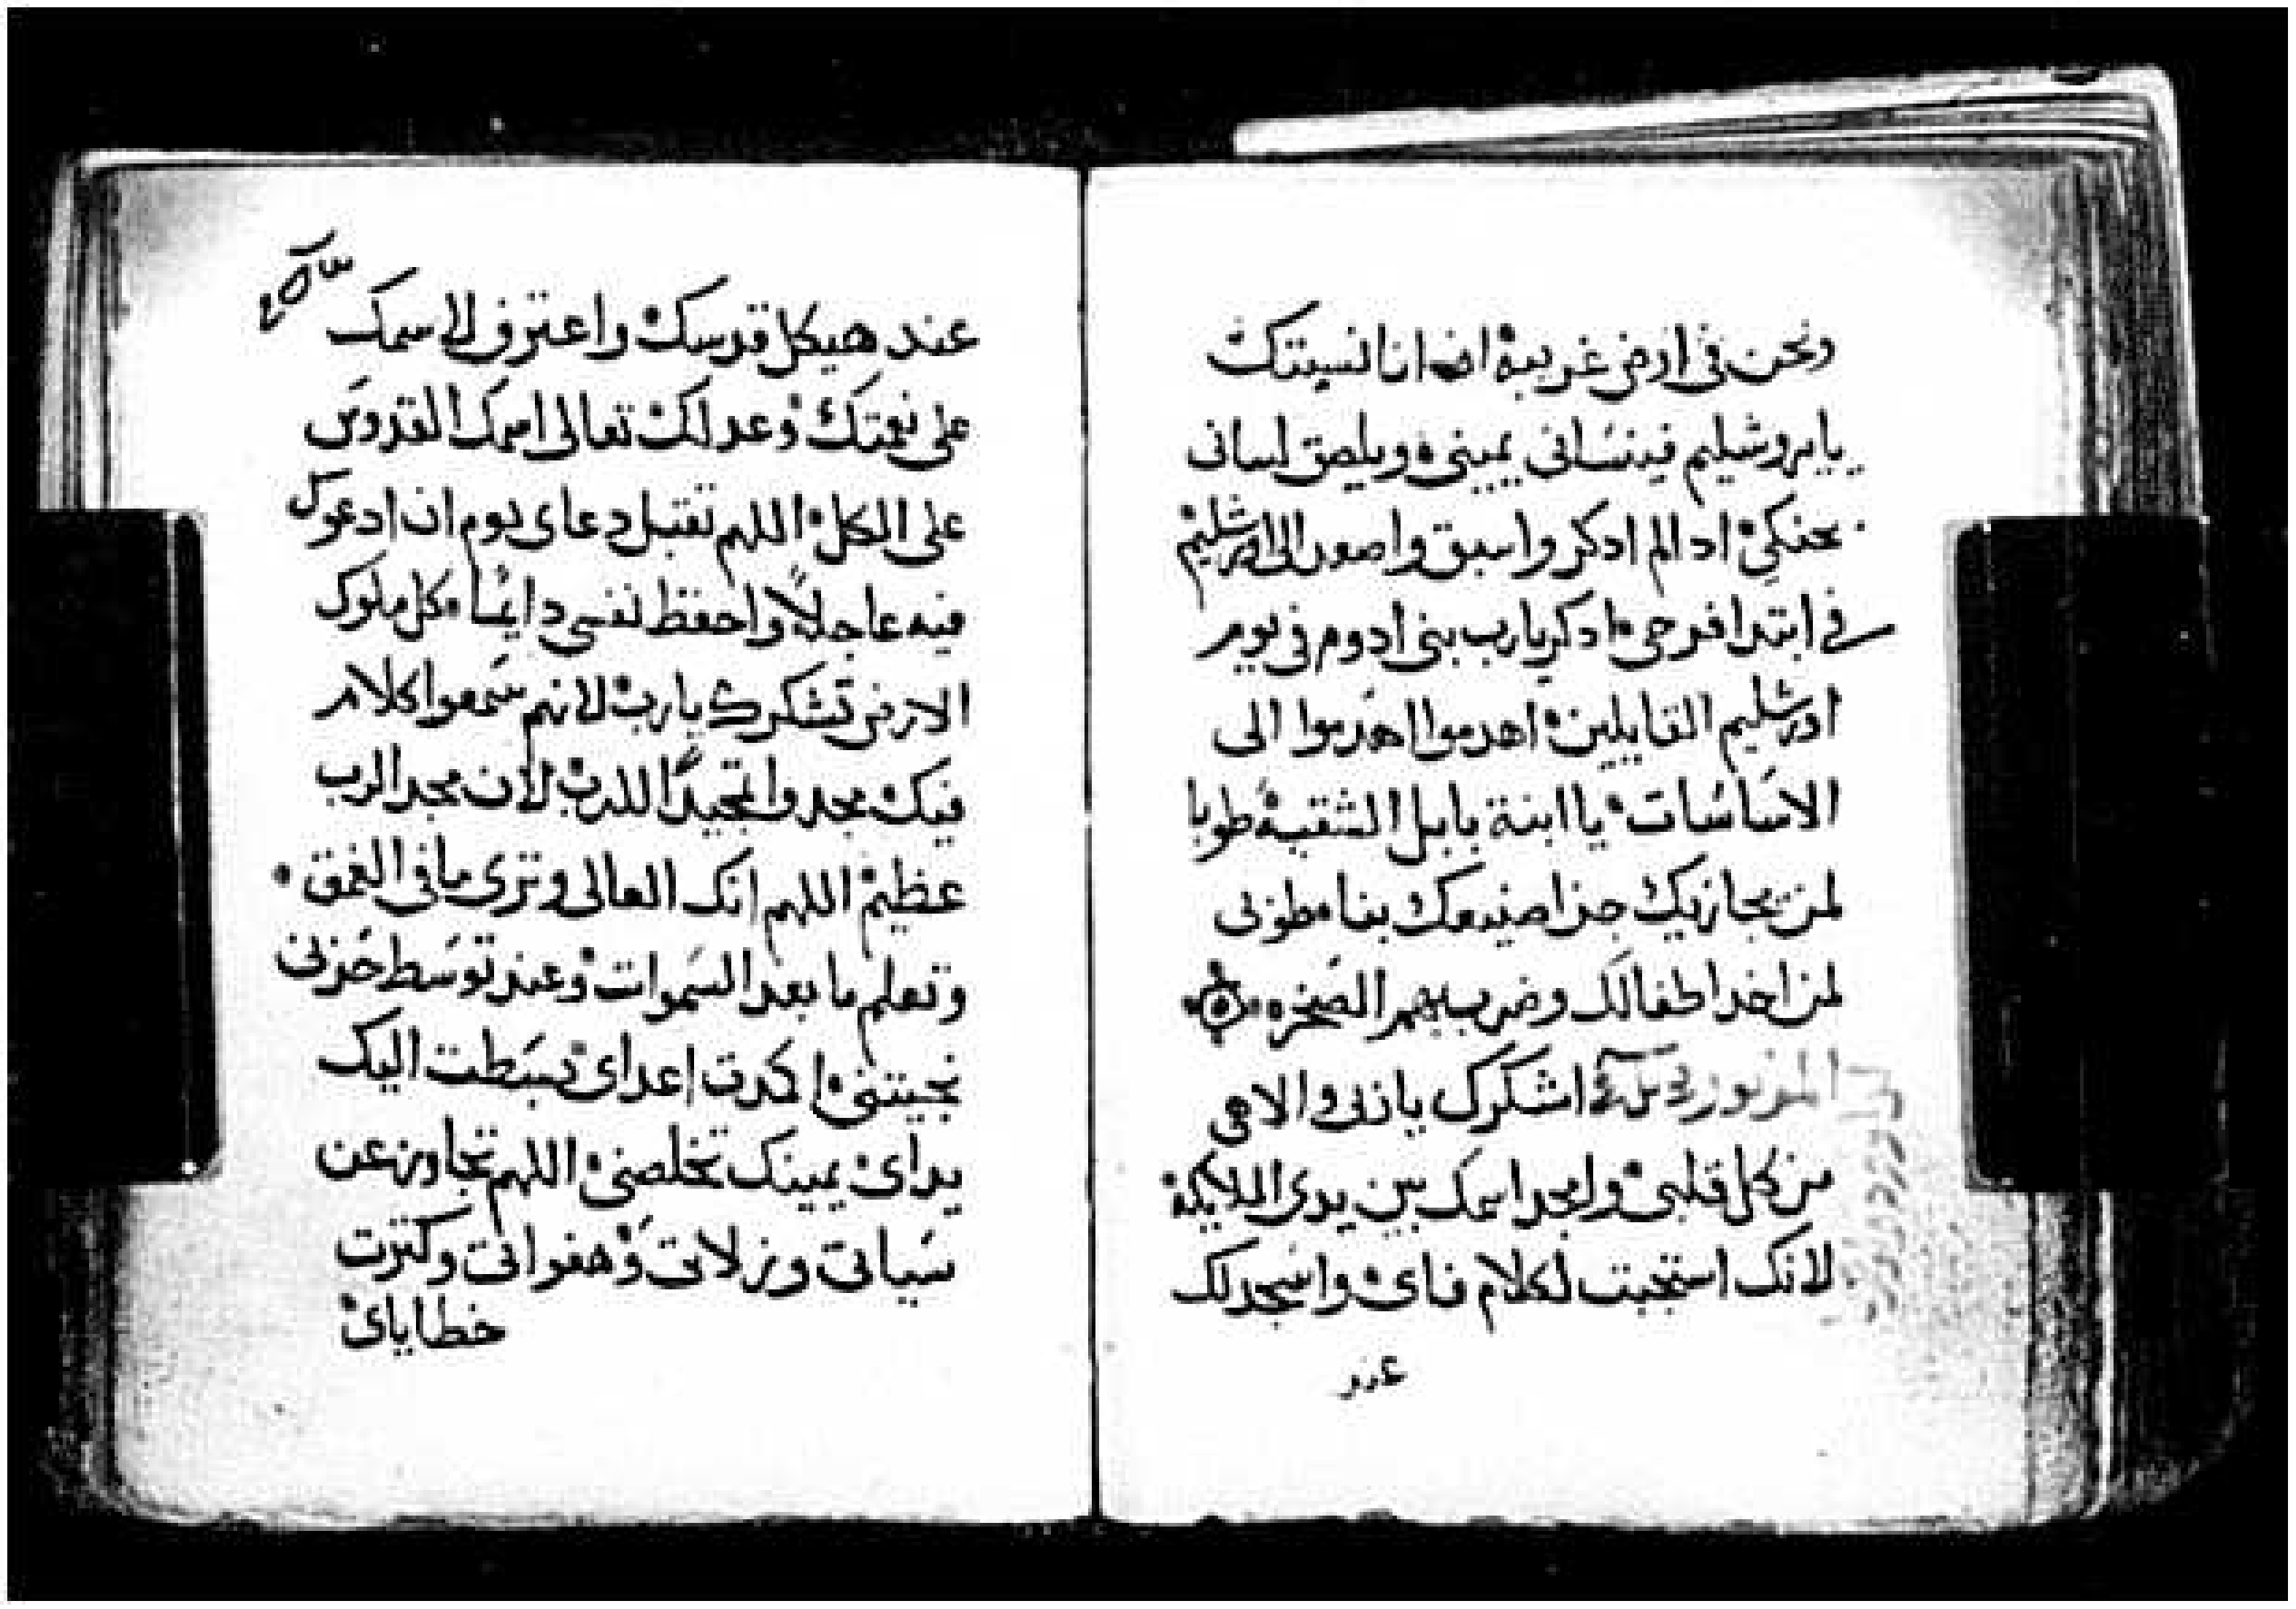 ونحن في ارض غريبة ان انا نسيتك
يا يروشليم فينساني يميني ويلصق لساني
بحنكي ادا لم ادكر واسبق واصعد الى اورشليم
في ابتدا فرحي ادكر يارب بني ادوم في يوم
اورشليم القايلين اهدموا اهدموا الى
الاساسات يا ابنة بابل الشقية طوبا
لمن يجازيك جزا صنيعك بنا طوبى
لمن اخد اطفالك وضرب بهم الصخره
المزمور اشكرك يا ربي والاهي
من كل قلبي وامجد اسمك بين يدي الملايكة
لانك استجبت لكلام فاي واسجد لك
عند
عند هيكل قدسك واعترف لاسمك
على نعمتك وعدلك تعالى اسمك القدوس
على الكل اللهم تقبل دعاي يوم ان ادعوك
فيه عاجلاً واحفظ نفسي دايماً كل ملوك
الارض تشكرك يارب لانهم سمعوا كلام
فيك مجدوا تمجيداً للرب لان مجد الرب
عظيم اللهم انك العالي وترى ما في العمق
وتعلم ما بعد السموات وعند توسط حزني
نجيتني اعداي بسطت اليك
يداي يمينك تخلصني اللهم تجاوز عن
سياتي وزلاتي وهفواتي وكثرت
خطاياي